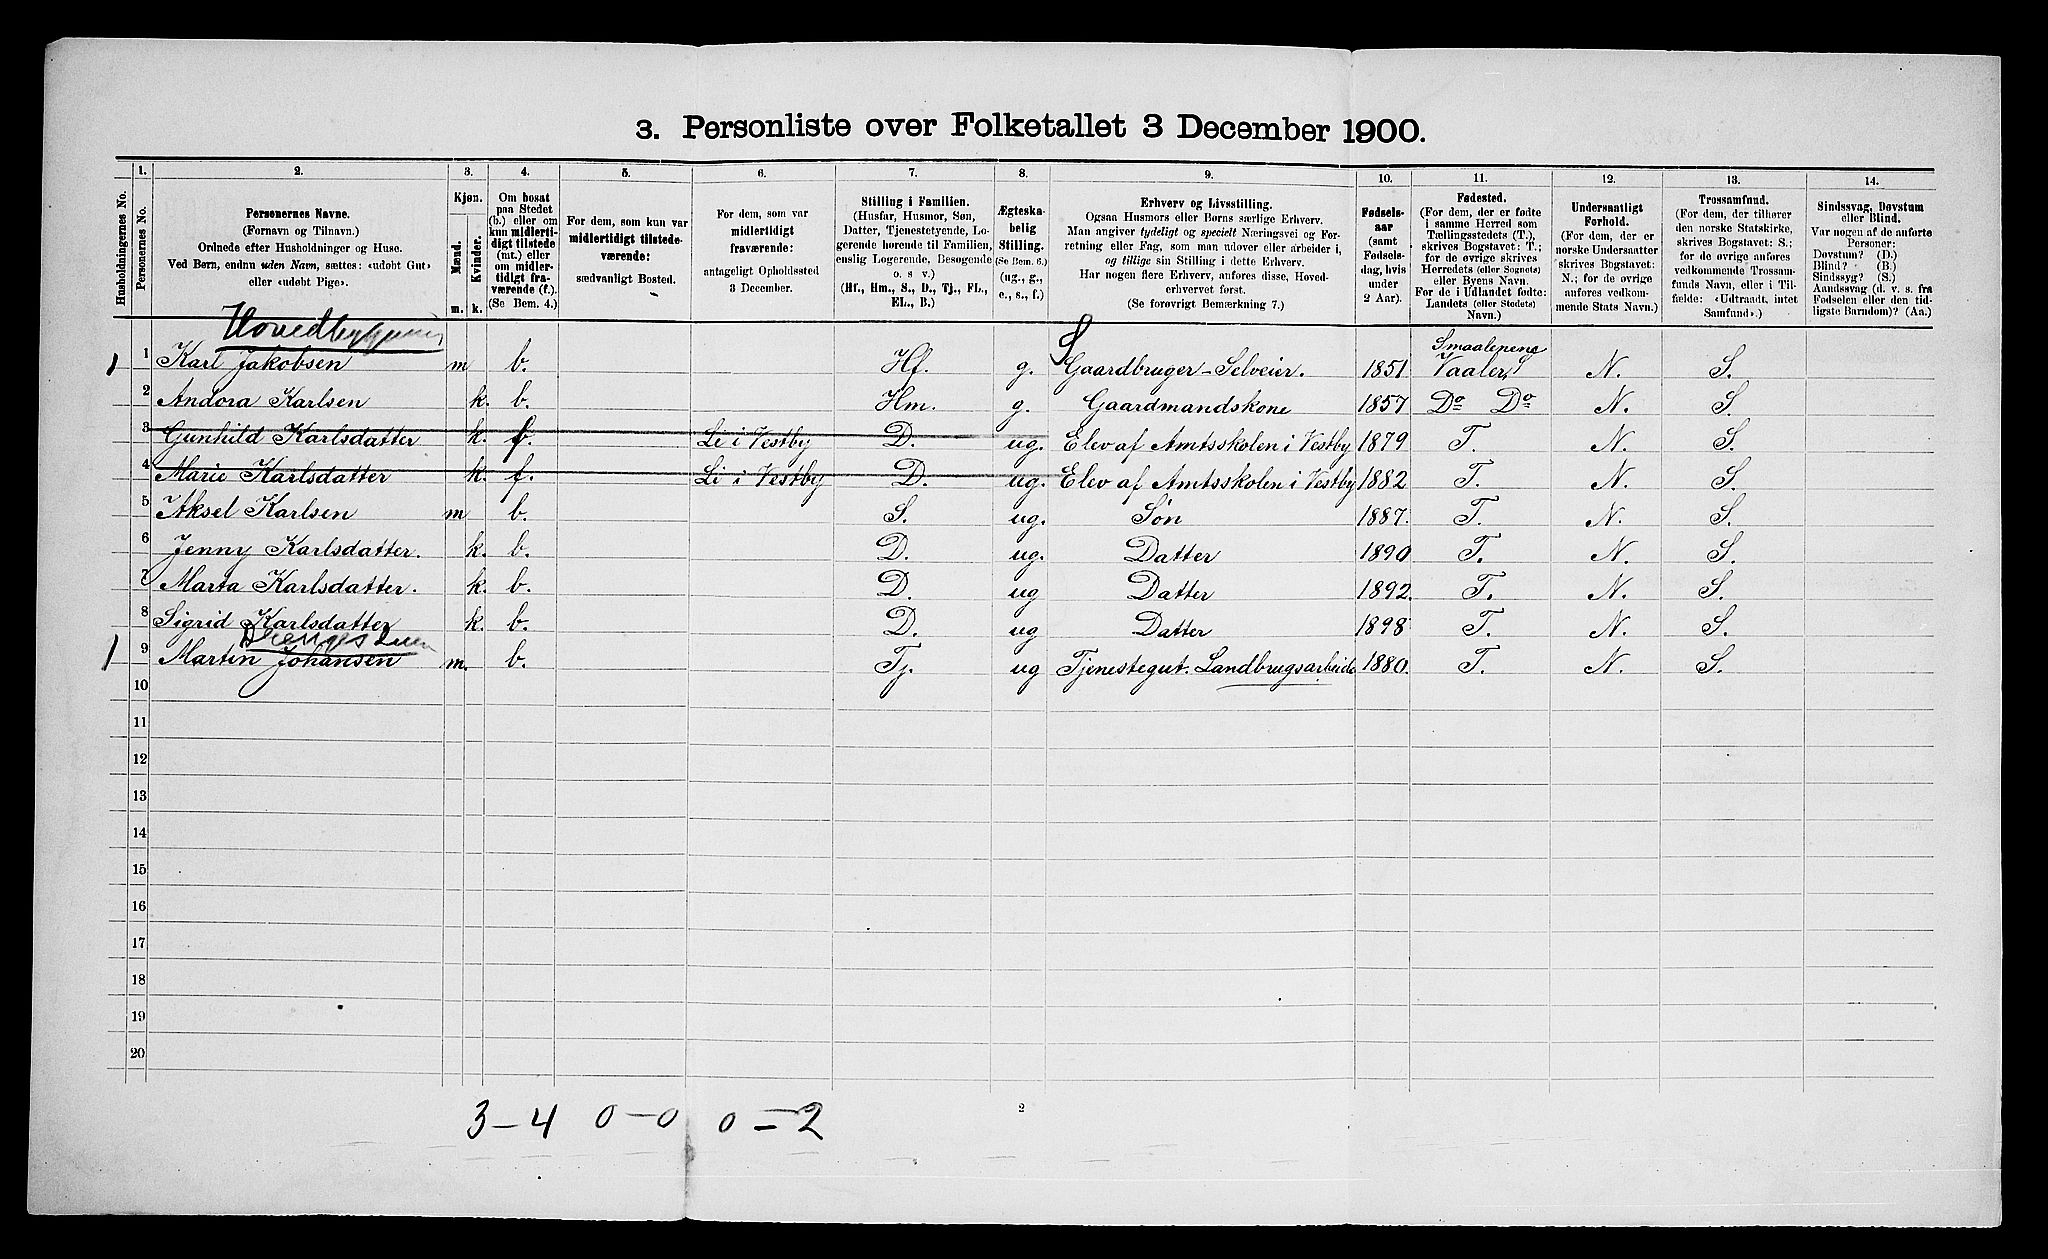 3. Personliste over Folketallet 3 December 1900.
Husholdningernes No.
1. Personernes No.
2. Personernes Navne.
(Fornavn og Tilnavn.)
Ordnede efter Husholdninger og Huse.
Ved Børn, endnu uden Navn, sættes: «udøbt Gut»
eller «udøbt Pige».
3. Kjøn.
Mænd. Kvinder.
m. k.
4. Om bosat
paa Stedet
(b.) eller om
kun midlerti-
digt tilstede
(mt.) eller
om midler-
tidigt fra-
værende (f.).
(Se Bem. 4.)
5. For dem, som kun var
midlertidigt tilstede-
værende:
sædvanligt Bosted.
6. For dem, som var
midlertidigt
fraværende:
antageligt Opholdssted
3 December.
7. Stilling i Familien.
(Husfar, Husmor, Søn,
Datter, Tjenestetyende, Lo-
gerende hørende til Familien,
enslig Logerende, Besøgende
o. s v.)
(Hf., Hm., S., D., Tj., FL.,
EL., B.)
8. Ægteska-
belig
Stilling.
(Se Bem. 6.)
(ug., g.,
e., s., f.)
9. Erhverv og Livsstilling.
Ogsaa Husmors eller Børns særlige Erhverv.
Man angiver tydeligt og specielt Næringsvei og For-
retning eller Fag, som man udover eller arbeider i,
og tillige sin Stilling i dette Erhverv.
Har nogen flere Erhverv, anføres disse, Hoved-
erhvervet først.
(Se forøvrigt Bemærkning 7.)
10. Fødsels-
aar
(samt
Fødsels-
dag, hvis
under
2 Aar).
11. Fødested.
(For dem, der er fødte
i samme Herred som
Tællingsstedets (T.),
skrives Bogstavet: T.;
for de øvrige skrives
Herredets (eller Sognets)
eller Byens Navn.
For de i Udlandet fødte:
Landets (eller Stedets)
Navn.)
12. Undersaatligt
Forhold.
(For dem, der er
norske Undersaatter
skrives Bogstavet:
N.; for de øvrige
anføres vedkom-
mende Stats Navn.)
13. Trossamfund.
(For dem, der tilhører
den norske Statskirke,
skrives Bogstavet: S.;
for de øvrige anføres
vedkommende Trossam-
funds Navn, eller i Til-
fælde: «Udtraadt, intet
Samfund».)
14. Sindssvag, Døvstum
eller Blind.
Var nogen af de anførte
Personer:
Døvstum? (D.)
Blind? (B.)
Sindssyg? (S.)
Aandssvag (d. v. s. fra
Fødselen eller den tid-
ligste Barndom)? (Aa.)
Hovedbygning
S
Smaalenene
1 Karl Jakobsen m b. Hf. g. Gaardbruger-Selveier. 1851 Vaaler, N. S.
2 Andora Karlsen k. b. Hm. g. Gaardmandskone 1857 Do Do N. S.
3 Gunhild Karlsdatter k. f. Li i Vestby D. ug. Elev af Amtsskolen i Vestby 1879 T. N. S.
4 Marie Karlsdatter k. f. Li i Vestby D. ug. Elev af Amtsskolen i Vestby 1882 T. N. S.
5 Aksel Karlsen m b. S. ug. Søn 1887. T. N. S.
6 Jenny Karlsdatter. k. b. D. ug. Datter 1890 T. N. S.
7 Marta Karlsdatter. k. b. D. ug Datter 1892. T. N. S.
8 Sigrid Karlsdatter k. b. D. ug Datter 1898 T. N. S.
9 Martin Johansen m. b. Tj. ug Tjenestegut. Landbrugsarbeide 1880. T. N. S.
10
11
12
13
14
15
16
17
18
19
20
2
3-4 0-0 0-2